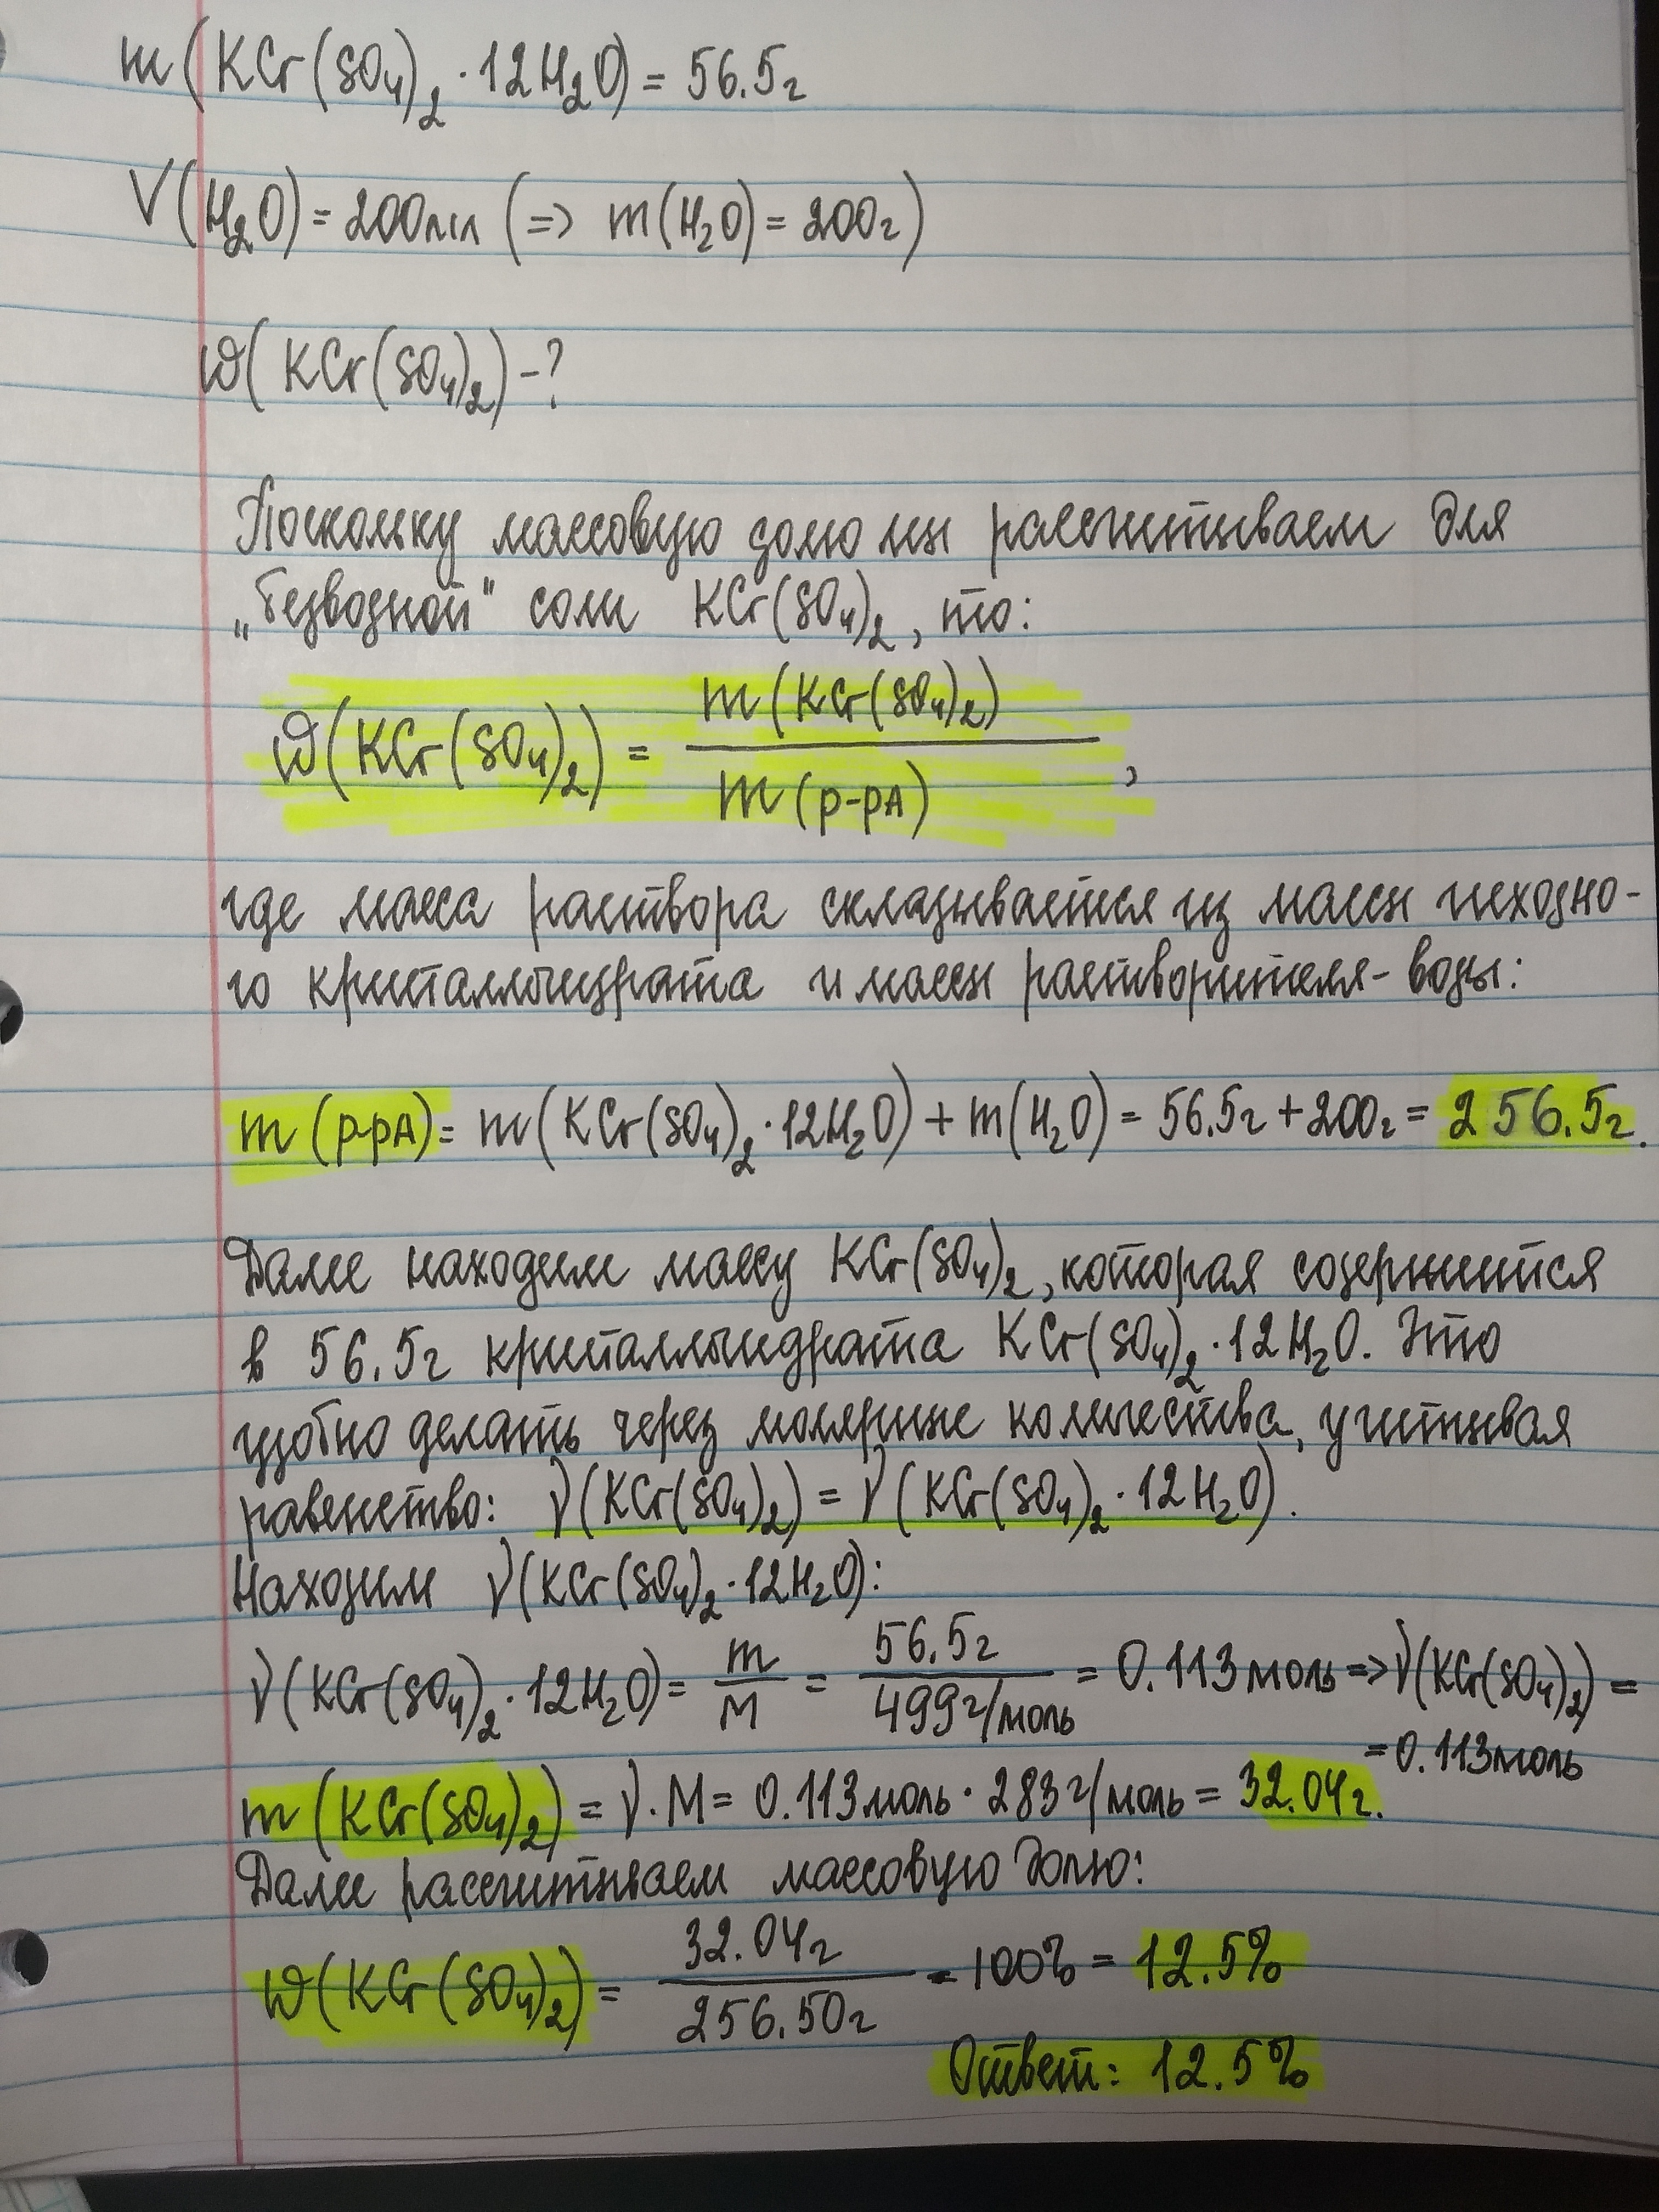 m(KCr(SO₄)₂·12H₂O) = 56.5г
V(H₂O) = 200мл (=> m(H₂O) = 200г)
ω(KCr(SO₄)₂) - ?
Поскольку массовую долю мы рассчитываем для
„безводной" соли KCr(SO₄)₂, то:
ω(KCr(SO₄)₂) = m(KCr(SO₄)₂) / m(р-рА),
где масса раствора складывается из массы исходно-
го кристаллогидрата и массы растворителя-воды:
m(р-рА) = m(KCr(SO₄)₂·12H₂O) + m(H₂O) = 56.5г + 200г = 256.5г.
Далее находим массу KCr(SO₄)₂, которая содержится
в 56.5г кристаллогидрата KCr(SO₄)₂·12H₂O. Это
удобно делать через молярные количества, учитывая
равенство: ν(KCr(SO₄)₂) = ν(KCr(SO₄)₂·12H₂O).
Находим ν(KCr(SO₄)₂·12H₂O):
ν(KCr(SO₄)₂·12H₂O) = m/M = 56.5г / 499г/моль = 0.113моль => ν(KCr(SO₄)₂) =
= 0.113моль
m(KCr(SO₄)₂) = ν·M = 0.113моль · 283г/моль = 32.04г.
Далее рассчитываем массовую долю:
ω(KCr(SO₄)₂) = 32.04г / 256.50г · 100% = 12.5%
Ответ: 12.5%